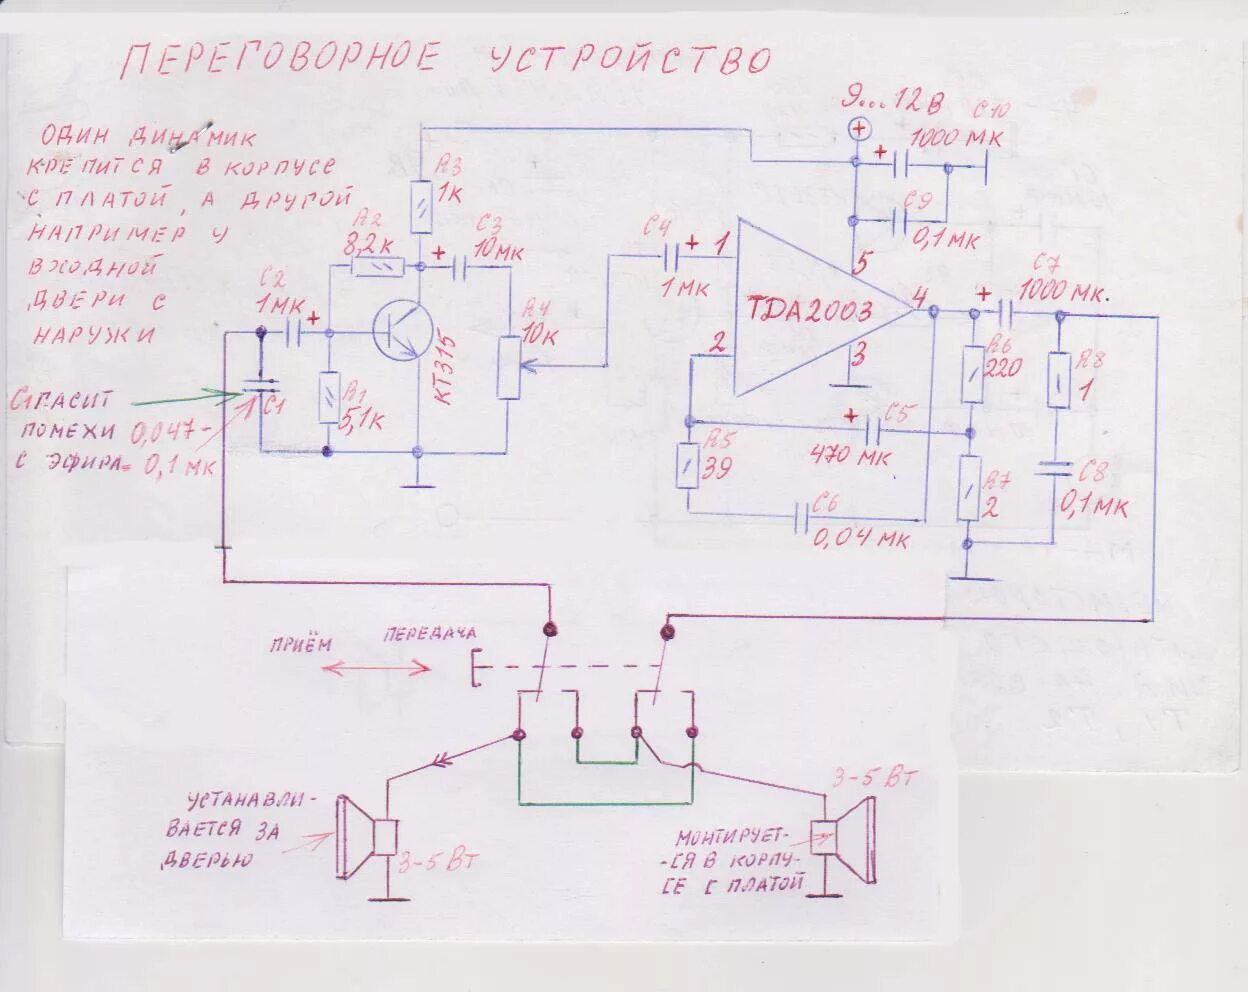 ПЕРЕГОВОРНОЕ УСТРОЙСТВО
ОДИН ДИНАМИК
КРЕПИТСЯ В КОРПУСЕ
С ПЛАТОЙ, А ДРУГОЙ
НАПРИМЕР У
ВХОДНОЙ
ДВЕРИ С
НАРУЖИ
9...12В
+
C10
1000 МК
+
C9
0,1 МК
R3
1К
R2
8,2К
C3
+ 10 МК
C2
1 МК
+
R4
10К
C4
+ 1
1 МК
5
TDA2003
4
2
3
C7
+ 1000 МК.
КТ315
R1
5,1К
C1
C1 ГАСИТ
ПОМЕХИ 0,047-
С ЭФИРА - 0,1 МК
R6
220
R8
1
+ C5
470 МК
R5
39
C6
0,04 МК
R7
2
C8
0,1 МК
ПРИЁМ ПЕРЕДАЧА
УСТАНАВЛИ-
ВАЕТСЯ ЗА
ДВЕРЬЮ
3-5 ВТ
3-5 ВТ
МОНТИРУЕТ-
-СЯ В КОРПУ-
СЕ С ПЛАТОЙ